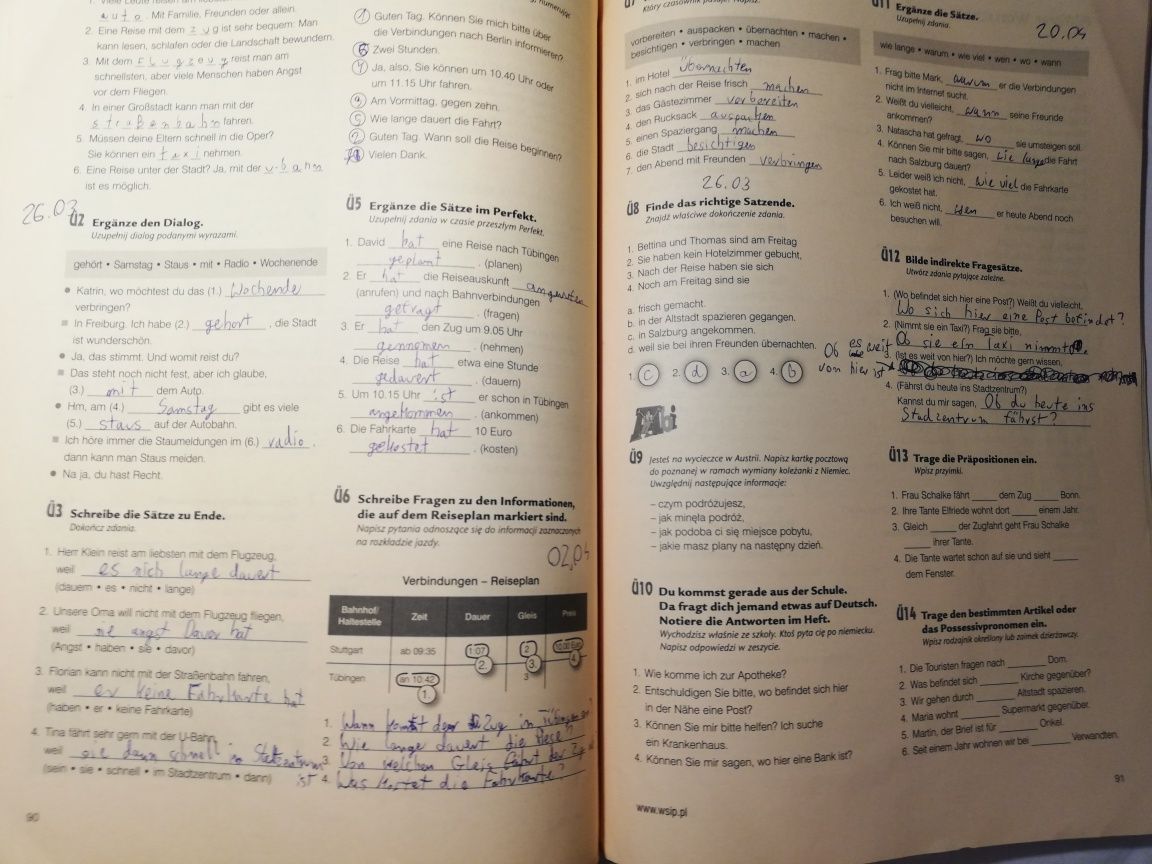 auto. Mit Familie, Freunden oder allein.
2. Eine Reise mit dem zug ist sehr bequem: Man
kann lesen, schlafen oder die Landschaft bewundern.
3. Mit dem Flugzeug reist man am
schnellsten, aber viele Menschen haben Angst
vor dem Fliegen.
4. In einer Großstadt kann man mit der
straßenbahn fahren.
5. Müssen deine Eltern schnell in die Oper?
Sie können ein taxi nehmen.
6. Eine Reise unter der Stadt? Ja, mit der u-bahn
ist es möglich.
26.03
Ü2 Ergänze den Dialog.
Uzupełnij dialog podanymi wyrazami.
gehört • Samstag • Staus • mit • Radio • Wochenende
• Katrin, wo möchtest du das (1.) Wochende
verbringen?
In Freiburg. Ich habe (2.) gehort, die Stadt
• Ja, das stimmt. Und womit reist du?
Das steht noch nicht fest, aber ich glaube,
(3.) mit dem Auto.
• Hm, am (4.) Samstag gibt es viele
(5.) staus auf der Autobahn.
Ich höre immer die Staumeldungen im (6.) radio.
dann kann man Staus meiden.
• Na ja, du hast Recht.
Ü3 Schreibe die Sätze zu Ende.
Dokończ zdania.
1. Herr Klein reist am liebsten mit dem Flugzeug,
weil es nich lange dauert
(dauern • es • nicht • lange)
2. Unsere Oma will nicht mit dem Flugzeug fliegen,
weil sie angst Davor hat
(Angst • haben • sie • davor)
3. Florian kann nicht mit der Straßenbahn fahren,
weil er keine Fahrkarte hat
(haben • er • keine Fahrkarte)
4. Tina fährt sehr gern mit der U-Bahn,
weil sie dann schnell im Stadtzentrum ist
(sein • sie • schnell • im Stadtzentrum • dann)
90
1 Guten Tag. Können Sie mich bitte über
die Verbindungen nach Berlin informieren?
6 Zwei Stunden.
4 Ja, also, Sie können um 10.40 Uhr oder
um 11.15 Uhr fahren.
3 Am Vormittag, gegen zehn.
5 Wie lange dauert die Fahrt?
2 Guten Tag. Wann soll die Reise beginnen?
Vielen Dank.
Ü5 Ergänze die Sätze im Perfekt.
Uzupełnij zdania w czasie przeszłym Perfekt.
1. David hat eine Reise nach Tübingen
geplant. (planen)
2. Er hat die Reiseauskunft
(anrufen) und nach Bahnverbindungen
gefragt. (fragen)
3. Er hat den Zug um 9.05 Uhr
gennomen. (nehmen)
4. Die Reise hat etwa eine Stunde
gedauert. (dauern)
5. Um 10.15 Uhr ist er schon in Tübingen
angekommen. (ankommen)
6. Die Fahrkarte hat 10 Euro
gekostet. (kosten)
Ü6 Schreibe Fragen zu den Informationen,
die auf dem Reiseplan markiert sind.
Napisz pytania odnoszące się do informacji zaznaczonych
na rozkładzie jazdy.
Verbindungen – Reiseplan
Bahnhof/Haltestelle Zeit Dauer Gleis Preis
Stuttgart ab 09:35 1:07 2 10,00 Euro
2. 3. 4.
Tübingen an 10:42 3
1.
1. Wann kommt der Zug in Tübingen
2. Wie lange dauert die
3. Von welchen Gleis fährt der Zug
4. Was kostet die Fahrkarte?
Który czasownik pasuje? Napisz.
vorbereiten • auspacken • übernachten • machen •
besichtigen • verbringen • machen
1. im Hotel übernachten
2. sich nach der Reise frisch machen
3. das Gästezimmer verbereiten
4. den Rucksack auspacken
5. einen Spaziergang machen
6. die Stadt besichtigen
7. den Abend mit Freunden verbringen
26.03
Ü8 Finde das richtige Satzende.
Znajdź właściwe dokończenie zdania.
1. Bettina und Thomas sind am Freitag
2. Sie haben kein Hotelzimmer gebucht,
3. Nach der Reise haben sie sich
4. Noch am Freitag sind sie
a. frisch gemacht.
b. in der Altstadt spazieren gegangen.
c. in Salzburg angekommen.
d. weil sie bei ihren Freunden übernachten.
1. c 2. d 3. a 4. b
Ü9 Jesteś na wycieczce w Austrii. Napisz kartkę pocztową
do poznanej w ramach wymiany koleżanki z Niemiec.
Uwzględnij następujące informacje:
– czym podróżujesz,
– jak minęła podróż,
– jak podoba ci się miejsce pobytu,
– jakie masz plany na następny dzień.
Ü10 Du kommst gerade aus der Schule.
Da fragt dich jemand etwas auf Deutsch.
Notiere die Antworten im Heft.
Wychodzisz właśnie ze szkoły. Ktoś pyta cię po niemiecku.
Napisz odpowiedzi w zeszycie.
1. Wie komme ich zur Apotheke?
2. Entschuldigen Sie bitte, wo befindet sich hier
in der Nähe eine Post?
3. Können Sie mir bitte helfen? Ich suche
ein Krankenhaus.
4. Können Sie mir sagen, wo hier eine Bank ist?
www.wsip.pl
Ü11 Ergänze die Sätze.
Uzupełnij zdania.
20.04
wie lange • warum • wie viel • wen • wo • wann
1. Frag bitte Mark, warum er die Verbindungen
nicht im Internet sucht.
2. Weißt du vielleicht, wann seine Freunde
ankommen?
3. Natascha hat gefragt, wo sie umsteigen soll.
4. Können Sie mir bitte sagen, wie lange die Fahrt
nach Salzburg dauert?
5. Leider weiß ich nicht, wie viel die Fahrkarte
gekostet hat.
6. Ich weiß nicht, wen er heute Abend noch
besuchen will.
Ü12 Bilde indirekte Fragesätze.
Utwórz zdania pytające zależne.
1. (Wo befindet sich hier eine Post?) Weißt du vielleicht,
Wo sich hier eine Post befindet?
2. (Nimmt sie ein Taxi?) Frag sie bitte,
Ob sie ein Taxi nimmt.
3. (Ist es weit von hier?) Ich möchte gern wissen,
Ob es weit
vom hier ist
4. (Fährst du heute ins Stadtzentrum?)
Kannst du mir sagen, Ob du heute ins
Stadzentrum fährst?
Ü13 Trage die Präpositionen ein.
Wpisz przyimki.
1. Frau Schalke fährt ____ dem Zug ____ Bonn.
2. Ihre Tante Elfriede wohnt dort ____ einem Jahr.
3. Gleich ____ der Zugfahrt geht Frau Schalke
____ ihrer Tante.
4. Die Tante wartet schon auf sie und sieht ____
dem Fenster.
Ü14 Trage den bestimmten Artikel oder
das Possessivpronomen ein.
Wpisz rodzajnik określony lub zaimek dzierżawczy.
1. Die Touristen fragen nach ____ Dom.
2. Was befindet sich ____ Kirche gegenüber?
3. Wir gehen durch ____ Altstadt spazieren.
4. Maria wohnt ____ Supermarkt gegenüber.
5. Martin, der Brief ist für ____ Onkel.
6. Seit einem Jahr wohnen wir bei ____ Verwandten.
91